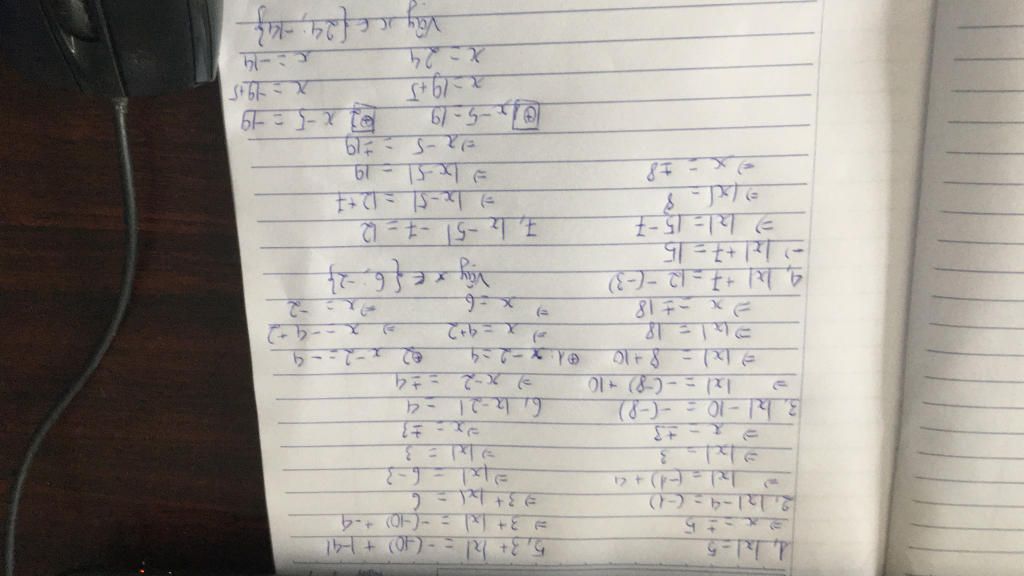 1, |x| = 5
⇒ x = ±5
2, |x| - 4 = (-1)
⇒ |x| = (-1) + 4
⇒ |x| = 3
⇒ x = ±3
3, |x| - 10 = -(-8)
⇒ |x| = -(-8) + 10
⇒ |x| = 8 + 10
⇒ |x| = 18
⇒ x = ±18
4, |x| + 7 = 12 - (-3)
⇒ |x| + 7 = 15
⇒ |x| = 15 - 7
⇒ |x| = 8
⇒ x = ±8
5, 3 + |x| = -(-10) + |-4|
⇒ 3 + |x| = -(-10) + -4
⇒ 3 + |x| = 6
⇒ |x| = 6 - 3
⇒ |x| = 3
⇒ x = ±3
6, |x - 2| = 4
⇒ x - 2 = ±4
⊕1. x - 2 = 4 ⊕2 x - 2 = -4
⇒ x = 4 + 2 ⇒ x = -4 + 2
⇒ x = 6 ⇒ x = -2
Vậy x ∈ {6; -2}
7, |x - 5| - 7 = 12
⇒ |x - 5| = 12 + 7
⇒ |x - 5| = 19
⇒ x - 5 = ±19
⊕1 x - 5 = 19 ⊕2 x - 5 = -19
x = 19 + 5 x = -19 + 5
x = 24 x = -14
Vậy x ∈ {24; -14}